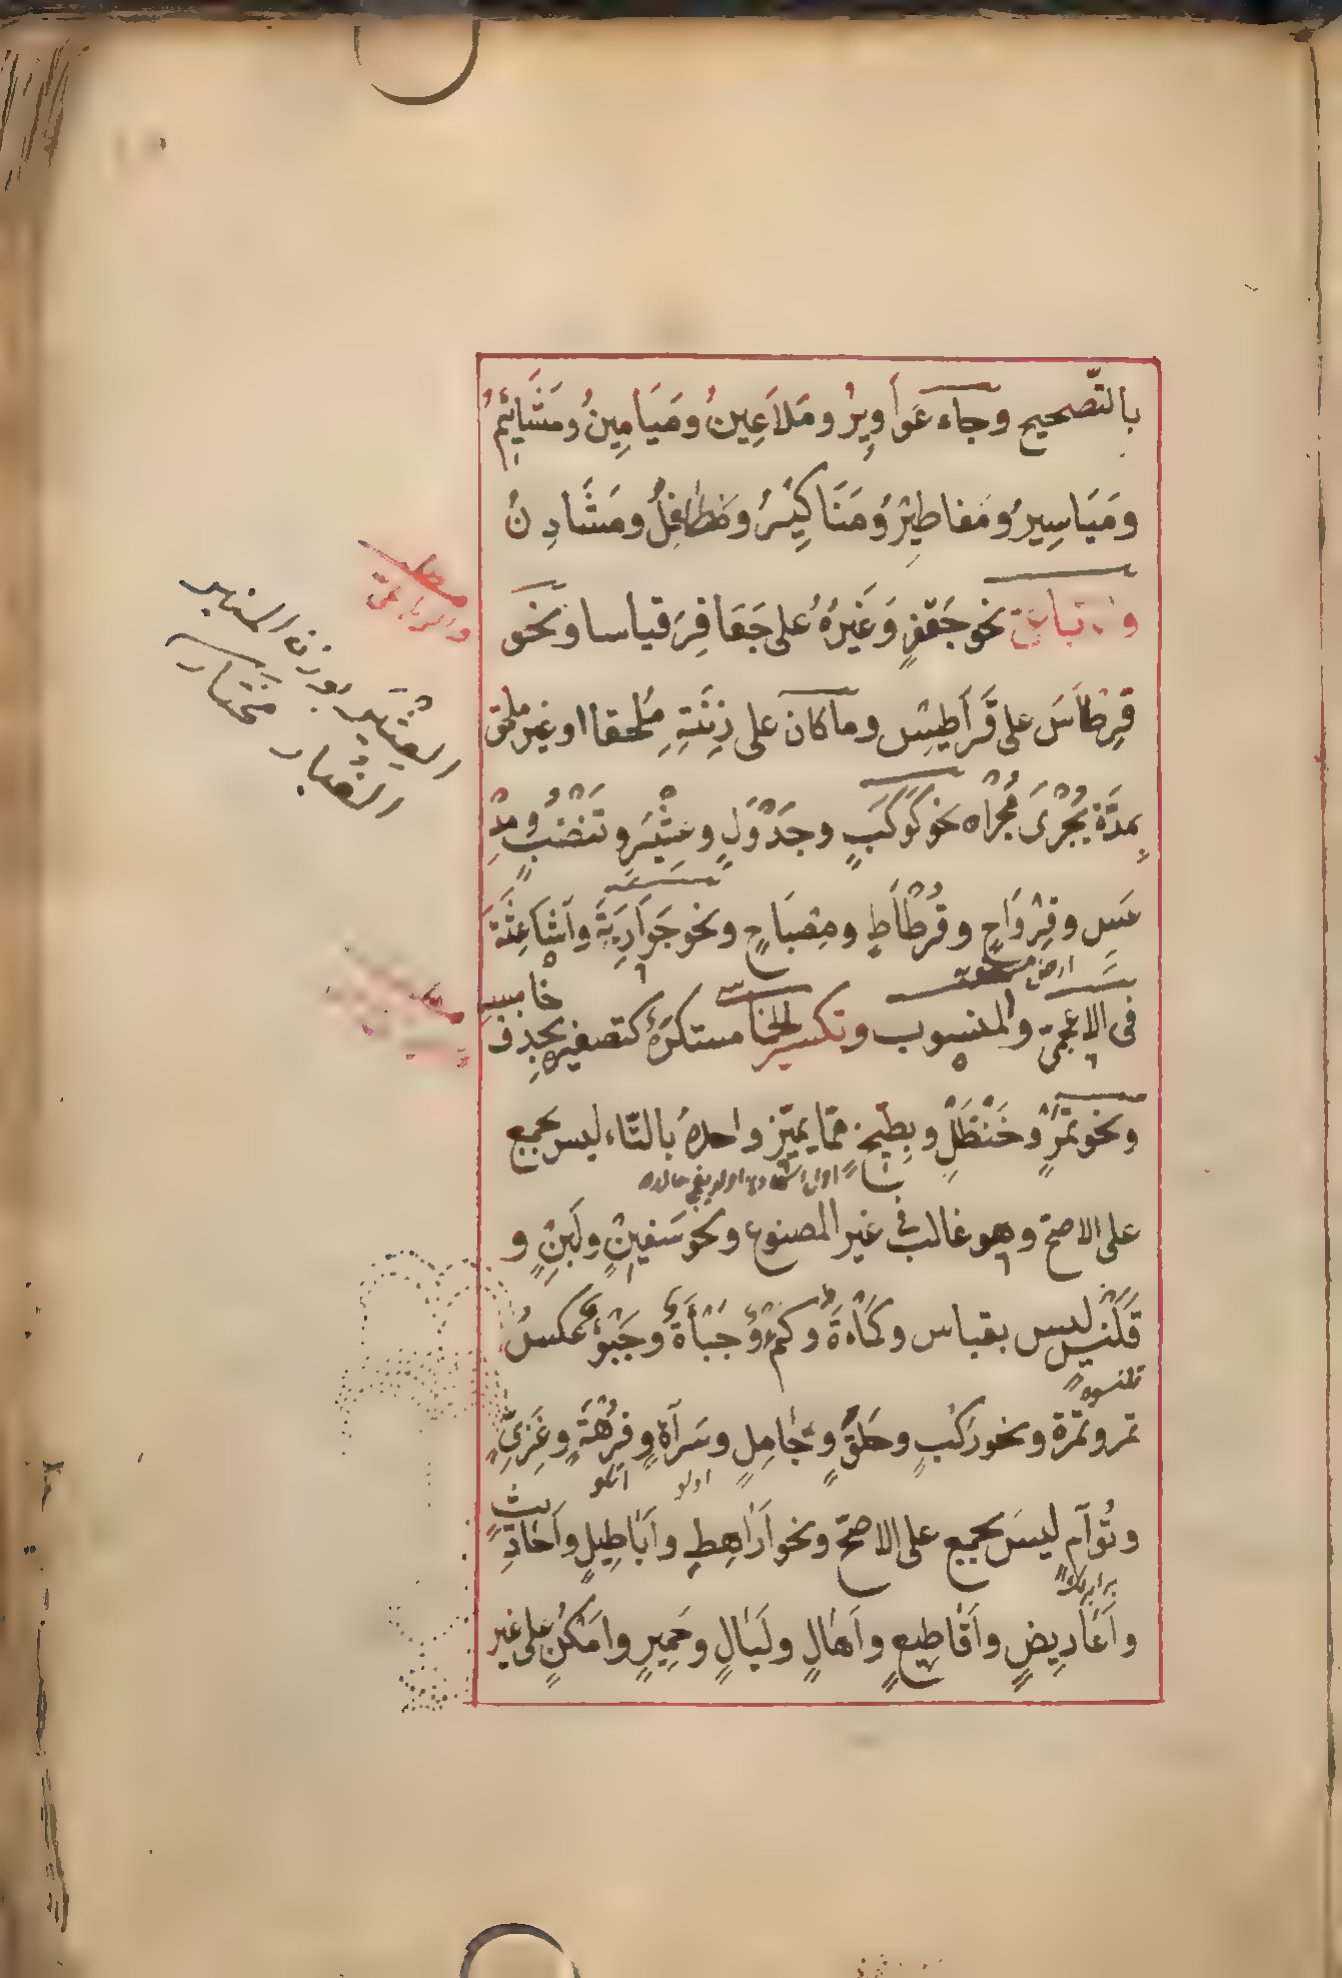 بالتّصحيح وجاء عَوَاوِيرُ ومَلاَعِينُ ومَيَامِينُ ومَشَايِئمُ
ومَيَاسِيرُ ومَفاطِيرُ ومَنَاكِيرُ ومَطَافِلُ ومَشَادِنُ
نحو جَعْفَرٍ وَغَيْرُهُ على جَعَافِرَ قياسا ونحو
قِرْطَاسَ على قَرَاطِيسَ وما كان على زِنَتِهِ مُلحقا او غير ملحق
بِمدَّة يُجْرَى مُجْرَاه نحو كَوكَبٍ وجَدْوَلٍ وعِثْيَرٍ وتَنْضُبٍ ومِدْ
عَسٍ وقِرْوَاحٍ وقُرْطَاطٍ ومِصْبَاحٍ ونحو جَوَارِبَةَ وأشَاعِثَةَ
فى الاعجمىّ والمنسوب وتكسير الخماسى مستكرَهٌ كتصغيره بحذف
خامسه
ونحو تَمْرٍ وحَنْظَلٍ وبِطّيخٍ ممّا يميّز واحدهُ بالتّاء ليس بجمع
على الاصحّ وهو غالب فى غير المصنوع ونحو سَفِينٍ ولَبِنٍ و
قَلَنْسٍ ليس بقياس وكَمْاءةٌ وكَمْءٌ وجَبْأَةٌ وجَبْؤٌ عكسُ
قلنسوه
تمر وتمرة ونحو رَكْبٍ وحَلَقٍ وجَامِلٍ وسَرَاةٍ وفُرْهَةٍ وغَزِىٍّ
وتُؤَآمٍ ليسَ بجمع على الاصحّ ونحو اَرَاهِطٍ واَبَاطِيلٍ واَحَادِيثٍ
واَعَارِيضٍ واَقَاطِيعٍ واَهَالٍ ولَيَالٍ وحَمِيرٍ واَمْكُنٍ على غير
والرباعى
العِثْيَر بوزن المنبر
الغُبار مختار